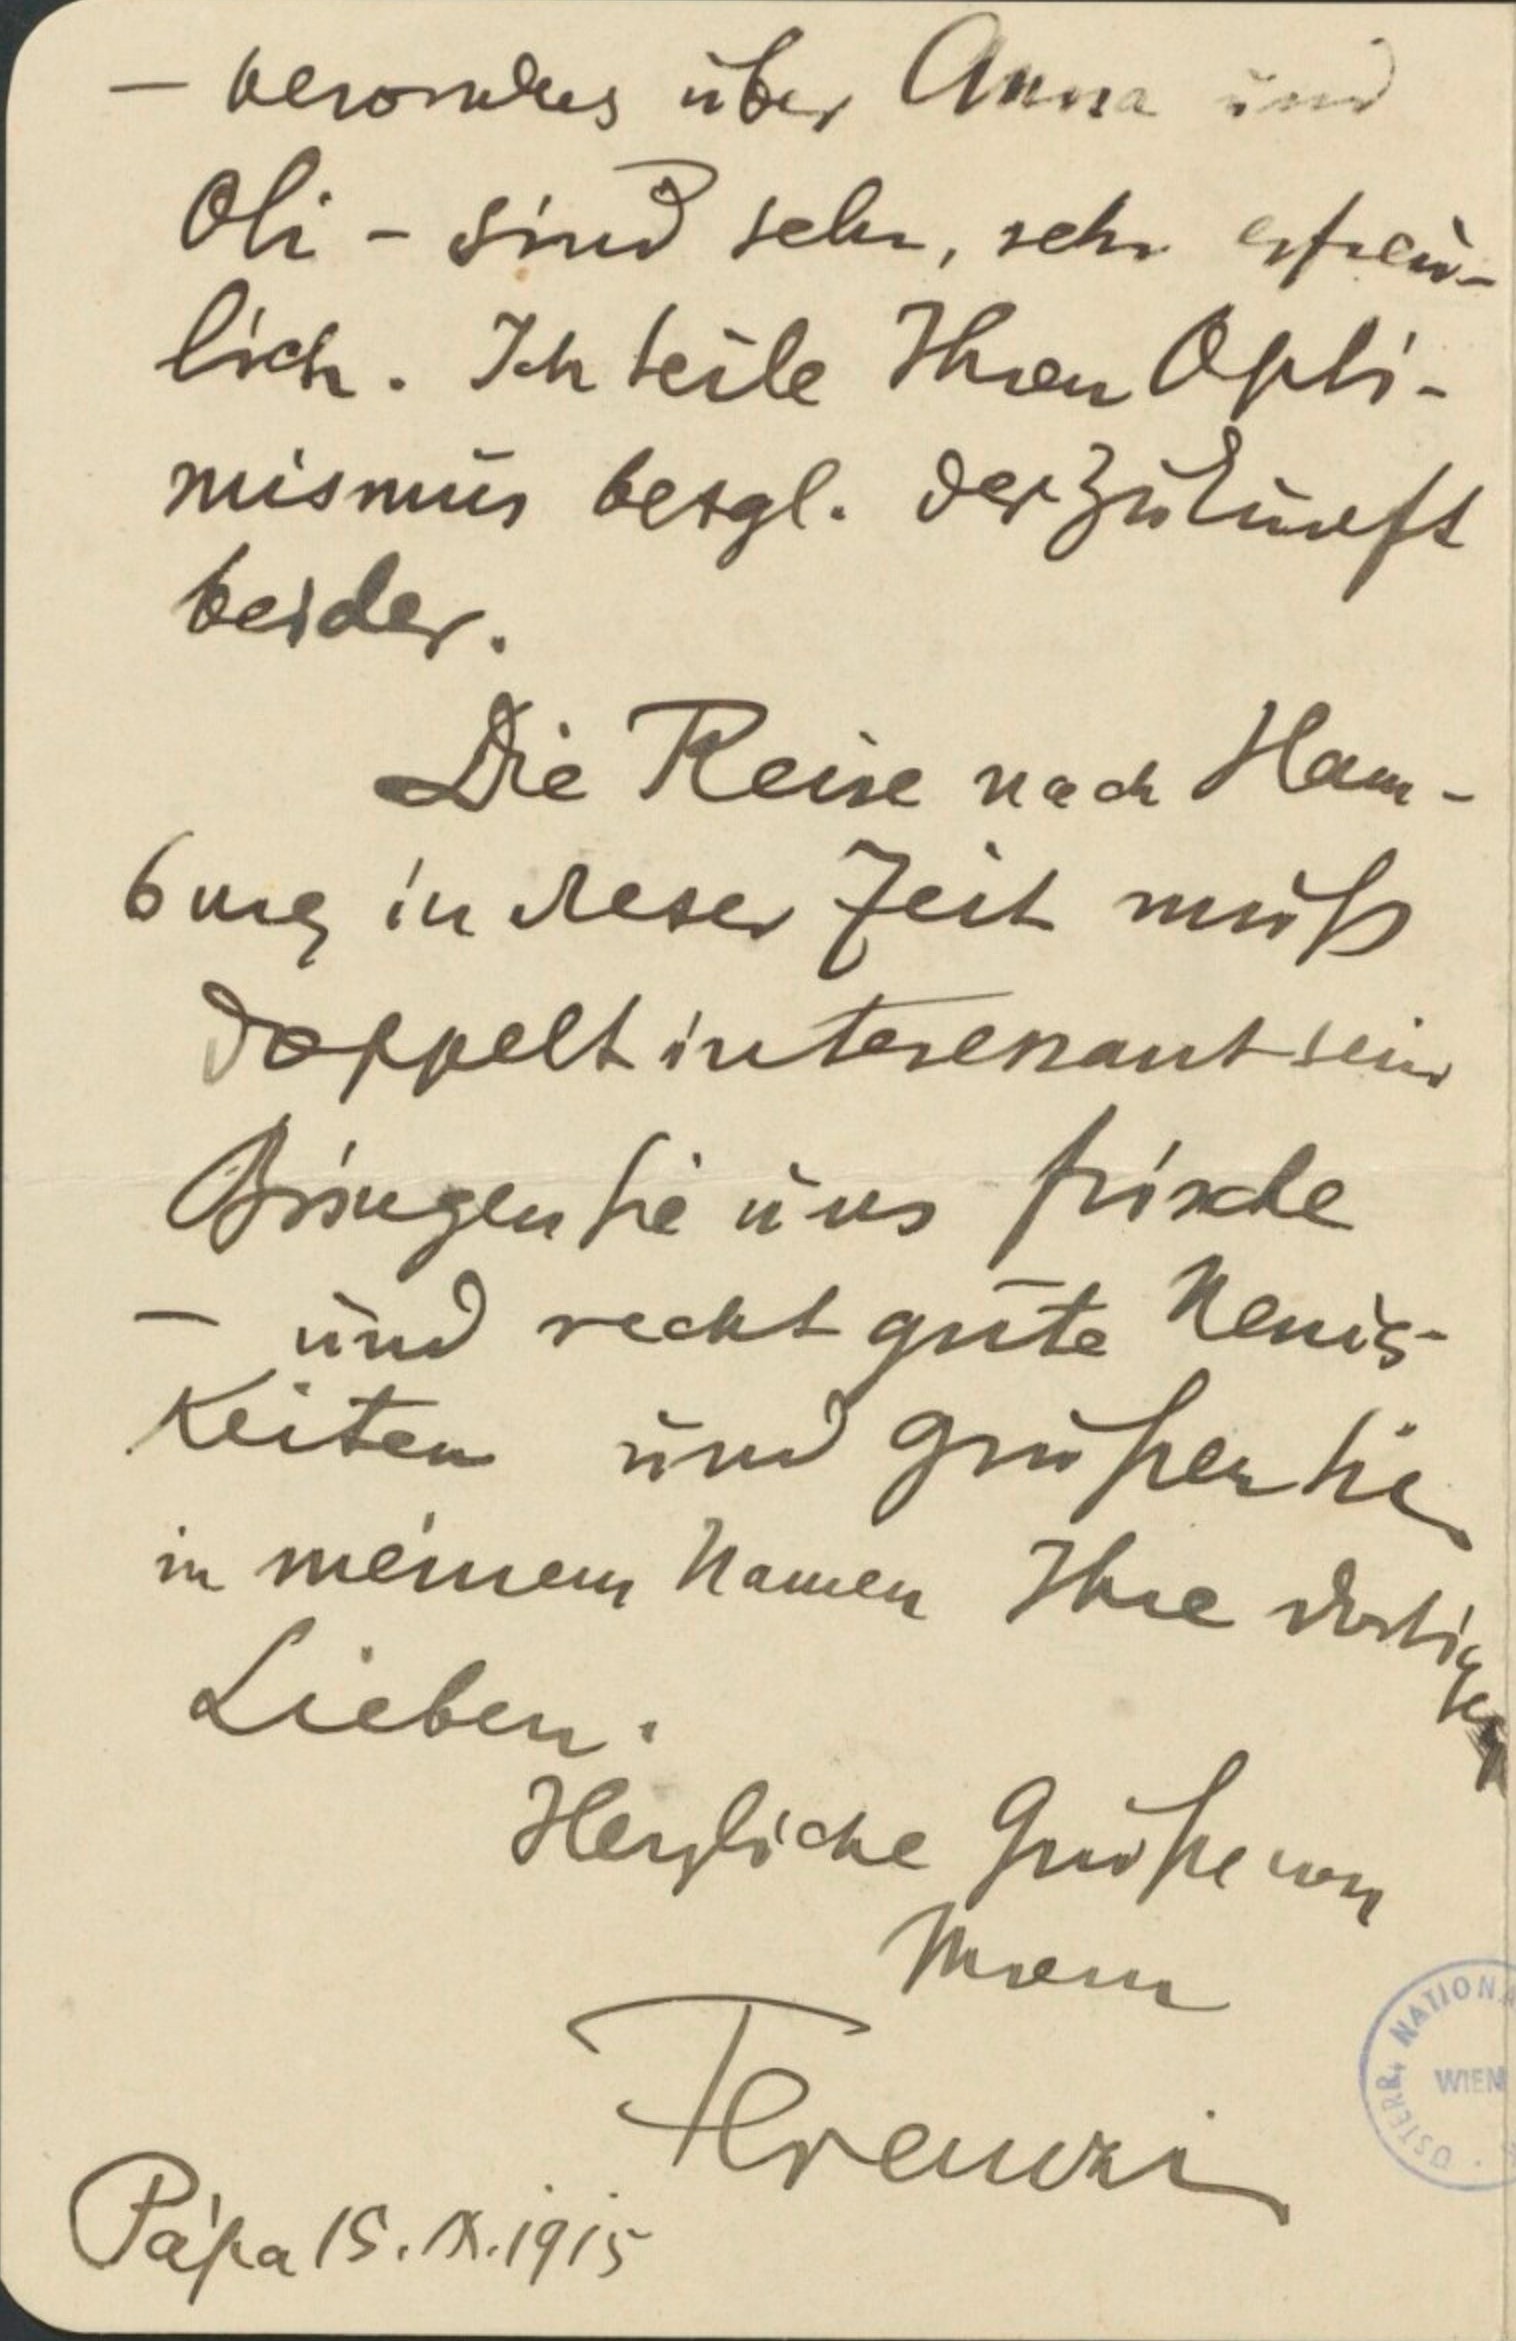 — besonders über Anna und
Oli – sind sehr, sehr erfreu-
lich. Ich teile Ihren Opti-
mismus bezgl. der Zukunft
beider.
Die Reise nach Ham-
burg in dieser Zeit muß
doppelt interessant sein
Bringen Sie uns frische
— und recht gute Neuig-
keiten und grüßen Sie
in meinem Namen Ihre dortigen
Lieben.
Herzliche Grüße von
Ihrem
Ferenczi
Pápa 15. IX. 1915
ÖSTERR. NATIONA
WIEN